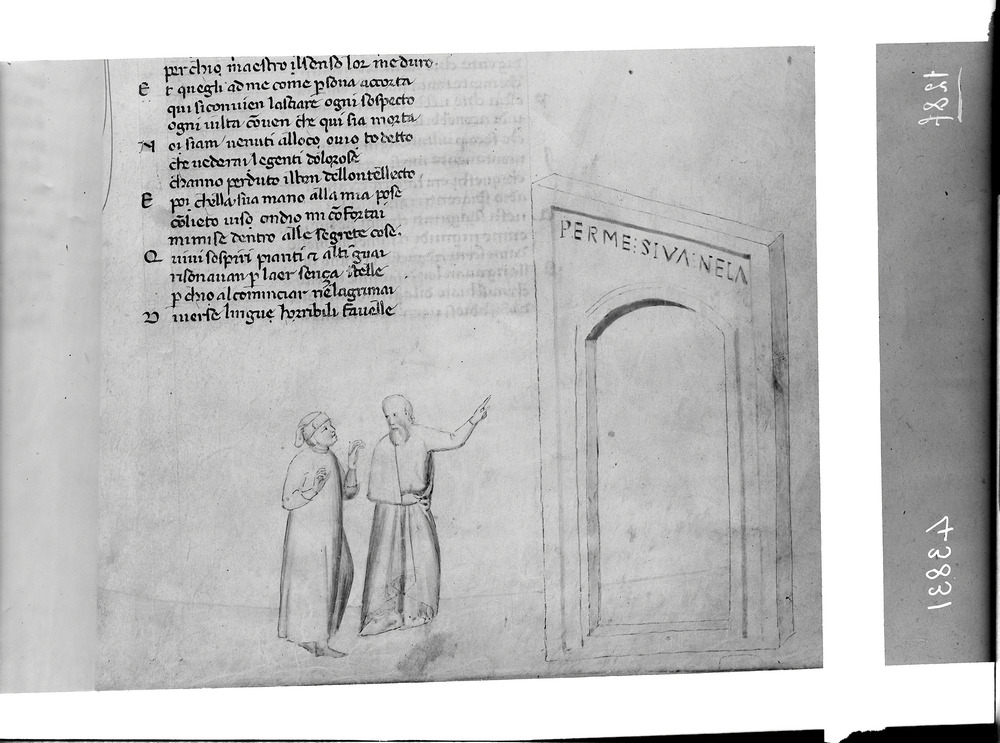 per chio maestro il senso lor me duro.
E t quegli ad me come p̲sona accorta
qui si conuien lasciare ogni sospecto
ogni uilta cōuen che qui sia morta
N oi siam uenuti alloco ouio to detto
che uederai le genti dolorose
channo perduto il ben dellontellecto
E poi chella sua mano alla mia pose
cōlieto uiso ondio mi cōfortai
mi mise dentro alle segrete cose.
Q uiui sospiri pianti ⁊ alti guai
risonauan p̲ laer sença stelle
p̲ chio al cominciar ne lagrimai
D iuerse lingue horribili fauelle
PER ME: SI VA: NE LA
1284
43831